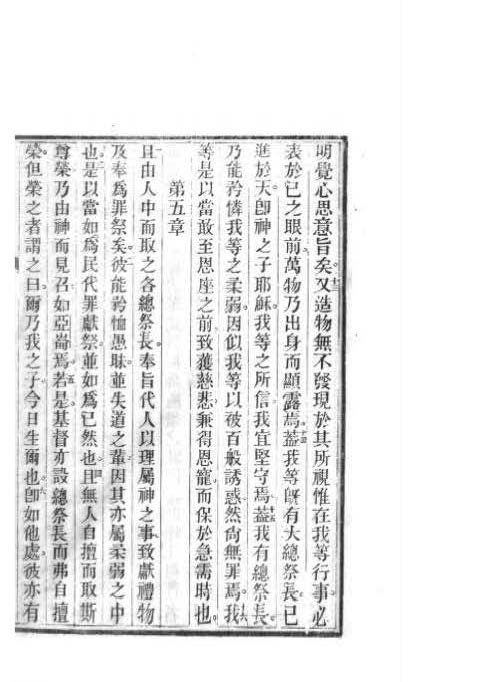 明覺心思意旨矣又造物無不發現於其所視惟在我等行事必
表於己之眼前萬物乃出身而顯露焉蓋我等既有大總祭長已
進於天卽神之子耶穌我等之所信我宜堅守焉蓋我有總祭長
乃能矜憐我等之柔弱因似我等以被百般誘惑然尚無罪焉我
等是以當敢至恩座之前致獲慈悲兼得恩寵而保於急需時也
第五章
且由人中而取之各總祭長奉旨代人以理屬神之事致獻禮物
及奉為罪祭矣彼能矜恤愚昧並失道之輩因其亦屬柔弱之中
也是以當如為民代罪獻祭並如為己然也且無人自擅而取斯
尊榮乃由神而見召如亞崙焉若是基督亦設總祭長而弗自擅
榮但榮之者謂之曰爾乃我之子今日生爾也卽如他處彼亦有